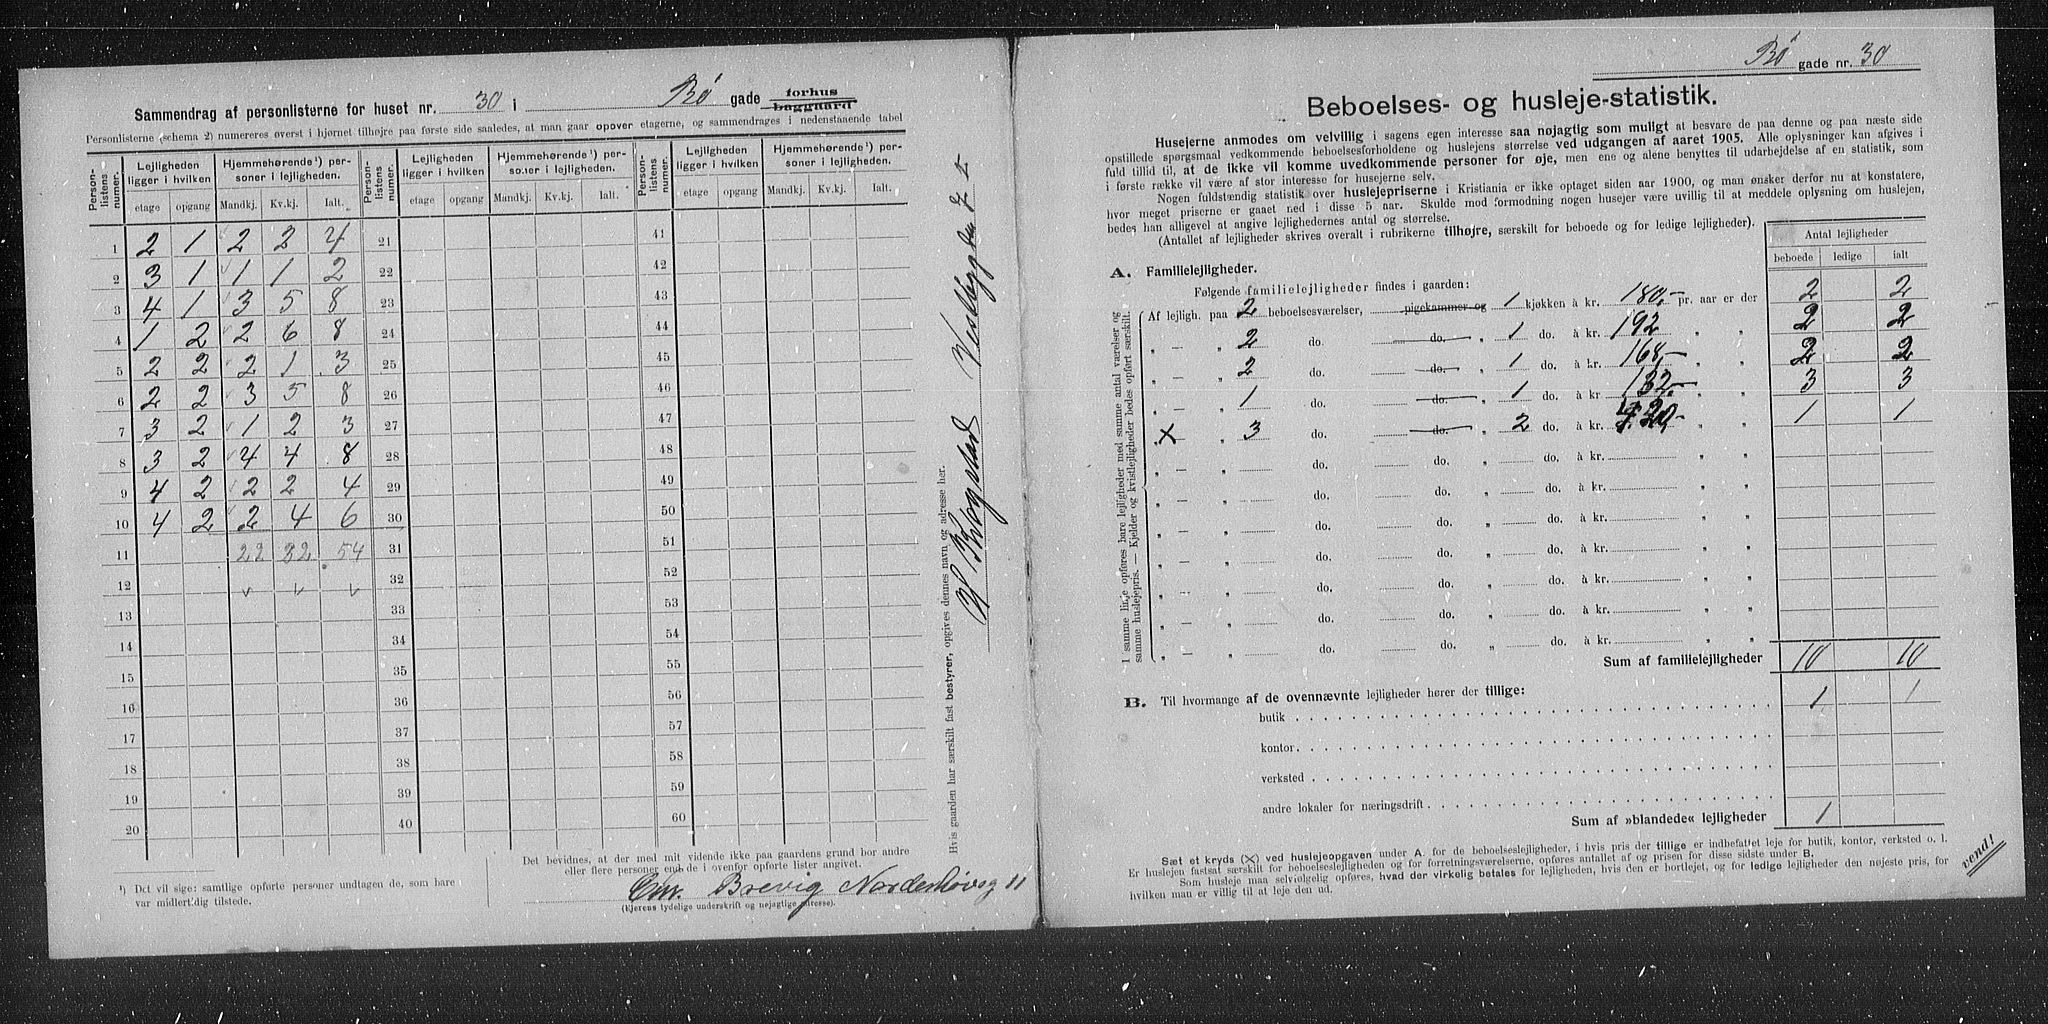 Sammendrag af personlisterne for huset nr. 30 i Bø gade forhus baggaard
Personlisterne (schema 2) numereres øverst i hjørnet tilhøjre paa første side saaledes, at man gaar opover etagerne, og sammendrages i nedenstaaende tabel
Person-listens numer. Lejligheden ligger i hvilken Hjemmehørende¹) personer i lejligheden. Person-listens numer. Lejligheden ligger i hvilken Hjemmehørende¹) personer i lejligheden. Person-listens numer. Lejligheden ligger i hvilken Hjemmehørende¹) personer i lejligheden.
etage opgang Mandkj. Kv.kj. Ialt. etage opgang Mandkj. Kv.kj. Ialt. etage opgang Mandkj. Kv.kj. Ialt.
1 2 1 2 2 4 21 41
2 3 1 1 1 2 22 42
3 4 1 3 5 8 23 43
4 1 2 2 6 8 24 44
5 2 2 2 1 3 25 45
6 2 2 3 5 8 26 46
7 3 2 1 2 3 27 47
8 3 2 4 4 8 28 48
9 4 2 2 2 4 29 49
10 4 2 2 4 6 30 50
11 22 32 54 31 51
12 32 52
13 33 53
14 34 54
15 35 55
16 36 56
17 37 57
18 38 58
19 39 59
20 40 60
¹) Det vil sige: samtlige opførte personer undtagen de, som bare
var midlertidig tilstede.
Det bevidnes, at der med mit vidende ikke paa gaardens grund bor andre
eller flere personer end de i ovenfor opførte lister angivet.
Chr. Brevig Norderhovsg 11
(Ejerens tydelige underskrift og nøjagtige adresse).
Hvis gaarden har særskilt fast bestyrer, opgives dennes navn og adresse her.
Bø gade nr. 30
Beboelses- og husleje-statistik.
Husejerne anmodes om velvillig i sagens egen interesse saa nøjagtig som muligt at besvare de paa denne og paa næste side
opstillede spørgsmaal vedkommende beboelsesforholdene og huslejens størrelse ved udgangen af aaret 1905. Alle oplysninger kan afgives i
fuld tillid til, at de ikke vil komme uvedkommende personer for øje, men ene og alene benyttes til udarbejdelse af en statistik, som
i første række vil være af stor interesse for husejerne selv.
Nogen fuldstændig statistik over huslejepriserne i Kristiania er ikke optaget siden aar 1900, og man ønsker derfor nu at konstatere,
hvor meget priserne er gaaet ned i disse 5 aar. Skulde mod formodning nogen husejer være uvillig til at meddele oplysning om huslejen,
bedes han alligevel at angive lejlighedernes antal og størrelse.
(Antallet af lejligheder skrives overalt i rubrikerne tilhøjre, særskilt for beboede og for ledige lejligheder).
Antal lejligheder
beboede ledige ialt
A. Familielejligheder.
Følgende familielejligheder findes i gaarden:
I samme linje opføres bare lejligheder med samme antal værelser og
samme huslejepris. — Kjelder og kvistlejligheder bedes opført særskilt.
Af lejligh. paa 2 beboelsesværelser, pigekammer og 1 kjøkken à kr. 180,- pr. aar er der 2 2
„ — „ 2 do. do. „ 1 do. à kr. 192 „ „ 2 2
„ — „ 2 do. do. „ 1 do. à kr. 168,- „ „ 2 2
„ — „ 1 do. do. „ 1 do. à kr. 132,- „ „ 3 3
X „ 3 do. do. „ 2 do. à kr. 420,- „ „ 1 1
„ — „ do. do. „ do. à kr. „ „
„ — „ do. do. „ do. à kr. „ „
„ — „ do. do. „ do. à kr. „ „
„ — „ do. do. „ do. à kr. „ „
„ — „ do. do. „ do. à kr. „ „
„ — „ do. do. „ do. à kr. „ „
„ — „ do. do. „ do. à kr. „ „
Sum af familielejligheder 10 10
B. Til hvormange af de ovennævnte lejligheder hører der tillige: 1 1
butik
kontor
verksted
andre lokaler for næringsdrift
Sum af »blandede« lejligheder 1
Sæt et kryds (X) ved huslejeopgaven under A. for de beboelseslejligheder, i hvis pris der tillige er indbefattet leje for butik, kontor, verksted o. l.
Er huslejen fastsat særskilt for beboelseslejligheden og for forretningsværelserne, opføres antallet af og prisen for disse sidste under B.
Som husleje maa selvfølgelig opføres, hvad der virkelig betales for lejligheden, hvis den er bortlejet, og for ledige lejligheder den nøjeste pris, for
hvilken man er villig til at leje den ud.
vend!